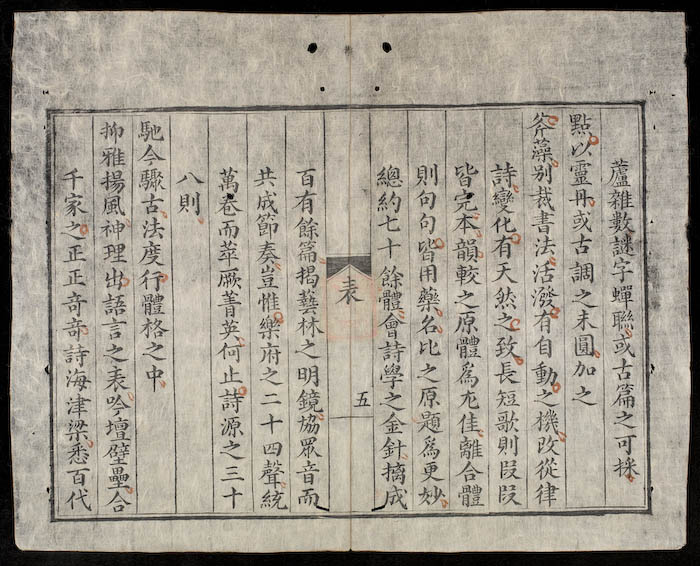 蘆雜數謎字蟬聯或古篇之可採
點以靈丹或古調之未圓加之
斧藻别裁書法活潑有自動之機改從律
詩變化有天然之致長短歌則段段
皆完本韻較之原體爲尤佳離合體
則句句皆用藥名比之原題爲更妙
總約七十餘體會詩學之金針摘成
表
五
百有餘篇揭藝林之明鏡協眾音而
共成節奏豈惟樂府之二十四聲統
萬卷而萃厥菁英何止詩源之三十
八則
馳今驟古法度行體格之中
抑雅揚風神理出語言之表吟壇壁壘合
千家之正正奇奇詩海津梁悉百代